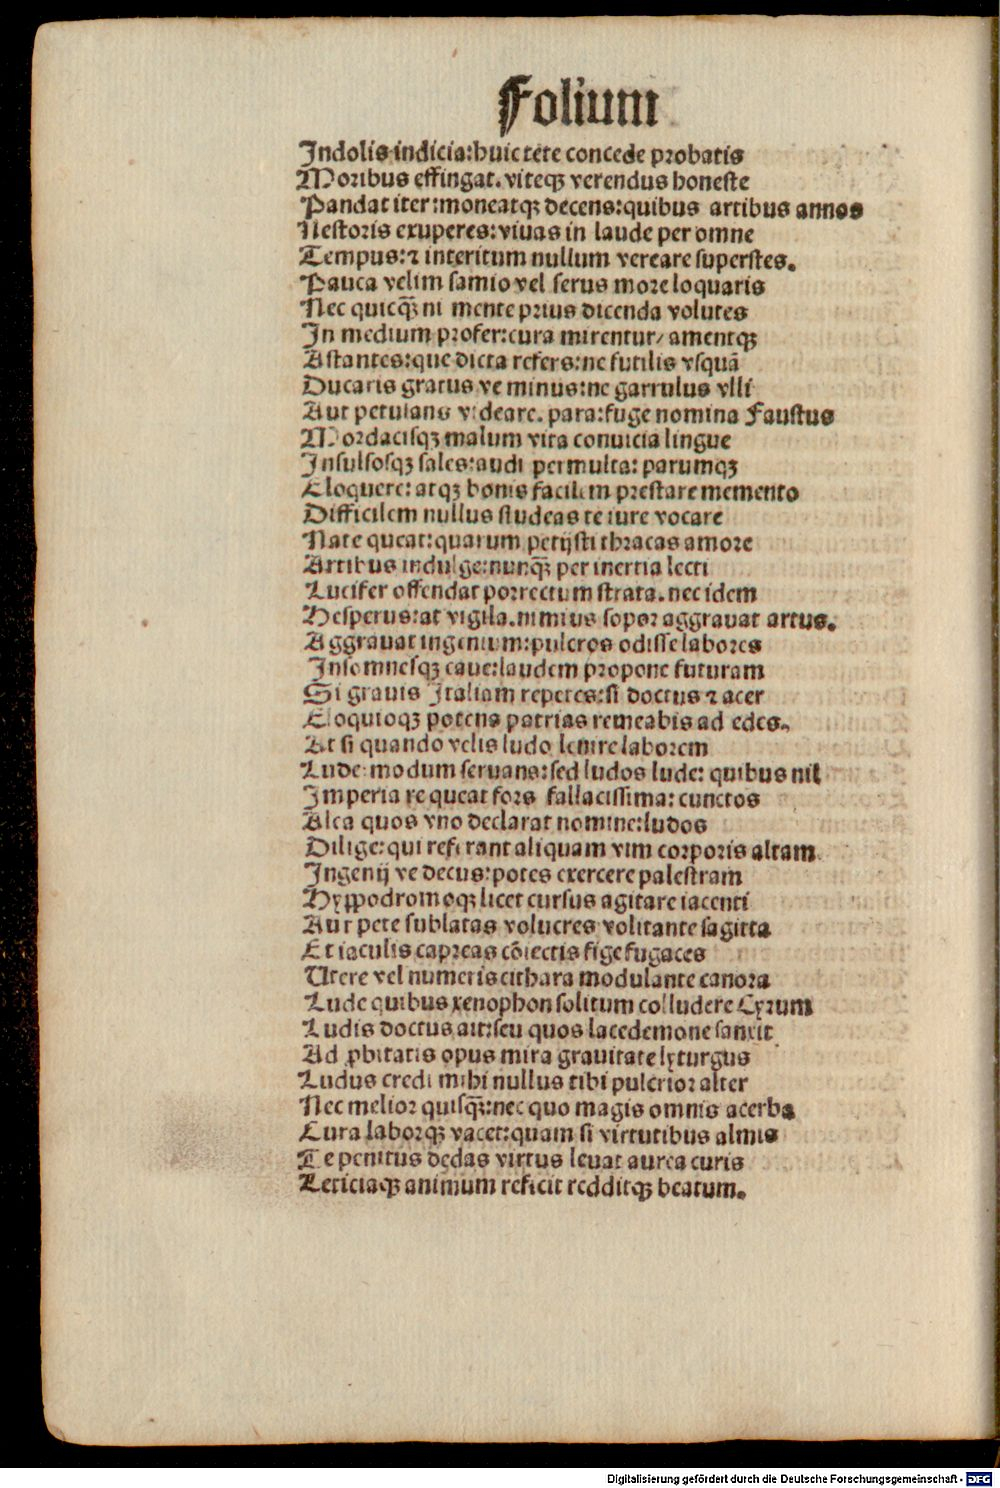 Folium
Indolis indicia:huic tete concede probatis
Moribus effingat. viteqꝫ verendus honeste
Pandat iter:moneatqꝫ decens:quibus artibus annos
Nestoris exuperes:viuas in laude per omne
Tempus:⁊ interitum nullum vereare superstes.
Pauca velim samio vel serus more loquaris
Nec quicqꝫ̃ ni mente prius dicenda volutes
In medium profer:cura mirentur/ amentqꝫ
Astantes:que dicta refers:ne futilis vsquā
Ducaris gratus ve minus:ne garrulus vlli
Aut petulans videare. para:fuge nomina Faustus
Mordacisqꝫ malum vita conuicia lingue
Insulsosqꝫ sales:audi permulta: parumqꝫ
Eloquere: atqꝫ bonis facilem prestare memento
Difficilem nullus studeas te iure vocare
Nate queat:quarum petijsti thracas amore
Artibus indulge:nunqꝫ̃ per inertia lecti
Lucifer offendat porrectum strata. nec idem
Hesperus:at vigila.nimius sopor aggrauat artus.
Aggrauat ingenium:pulcros odisse labores
Insomnesqꝫ caue:laudem propone futuram
Si grauis Italiam repetes:si doctus ⁊ acer
Eloquioqꝫ potens patrias remeabis ad edes.
At si quando velis ludo lenire laborem
Lude: modum seruans:sed ludos lude: quibus nil
Imperia re queat fors fallacissima: cunctos
Alea quos vno declarat nomine:ludos
Dilige:qui referant aliquam vim corporis altam
Ingenij ve decus:potes exercere palestram
Hyppodromoqꝫ licet cursus agitare iacenti
Aut pete sublatas volucres volitante sagitta
Et iaculis capreas cōiectis fige fugaces
Utere vel numeris cithara modulante canora
Lude quibus xenophon solitum colludere Cyrum
Ludis doctus ait:seu quos lacedemone sanxit
Ad ꝓbitatis opus mira grauitate lyturgus
Ludus credi mihi nullus tibi pulcrior alter
Nec melior quisqꝫ̃:nec quo magis omnis acerba
Cura laborqꝫ vacet:quam si virtutibus almis
Te penitus dedas virtus leuat aurea curis
Leticiaqꝫ animum reficit redditqꝫ beatum.
Digitalisierung gefördert durch die Deutsche Forschungsgemeinschaft - DFG